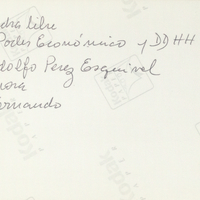 dra libre
Poder Económico y DDHH
dolfo Perez Esquivel
nora
ernando